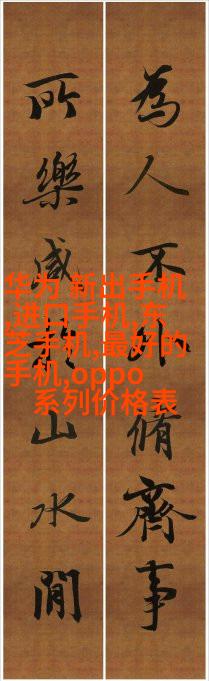 為人不外脩齊事
所樂咸山水間
华为 新出手机
,进口手机,东
芝手机,最好的
手机,oppo
系列价格表